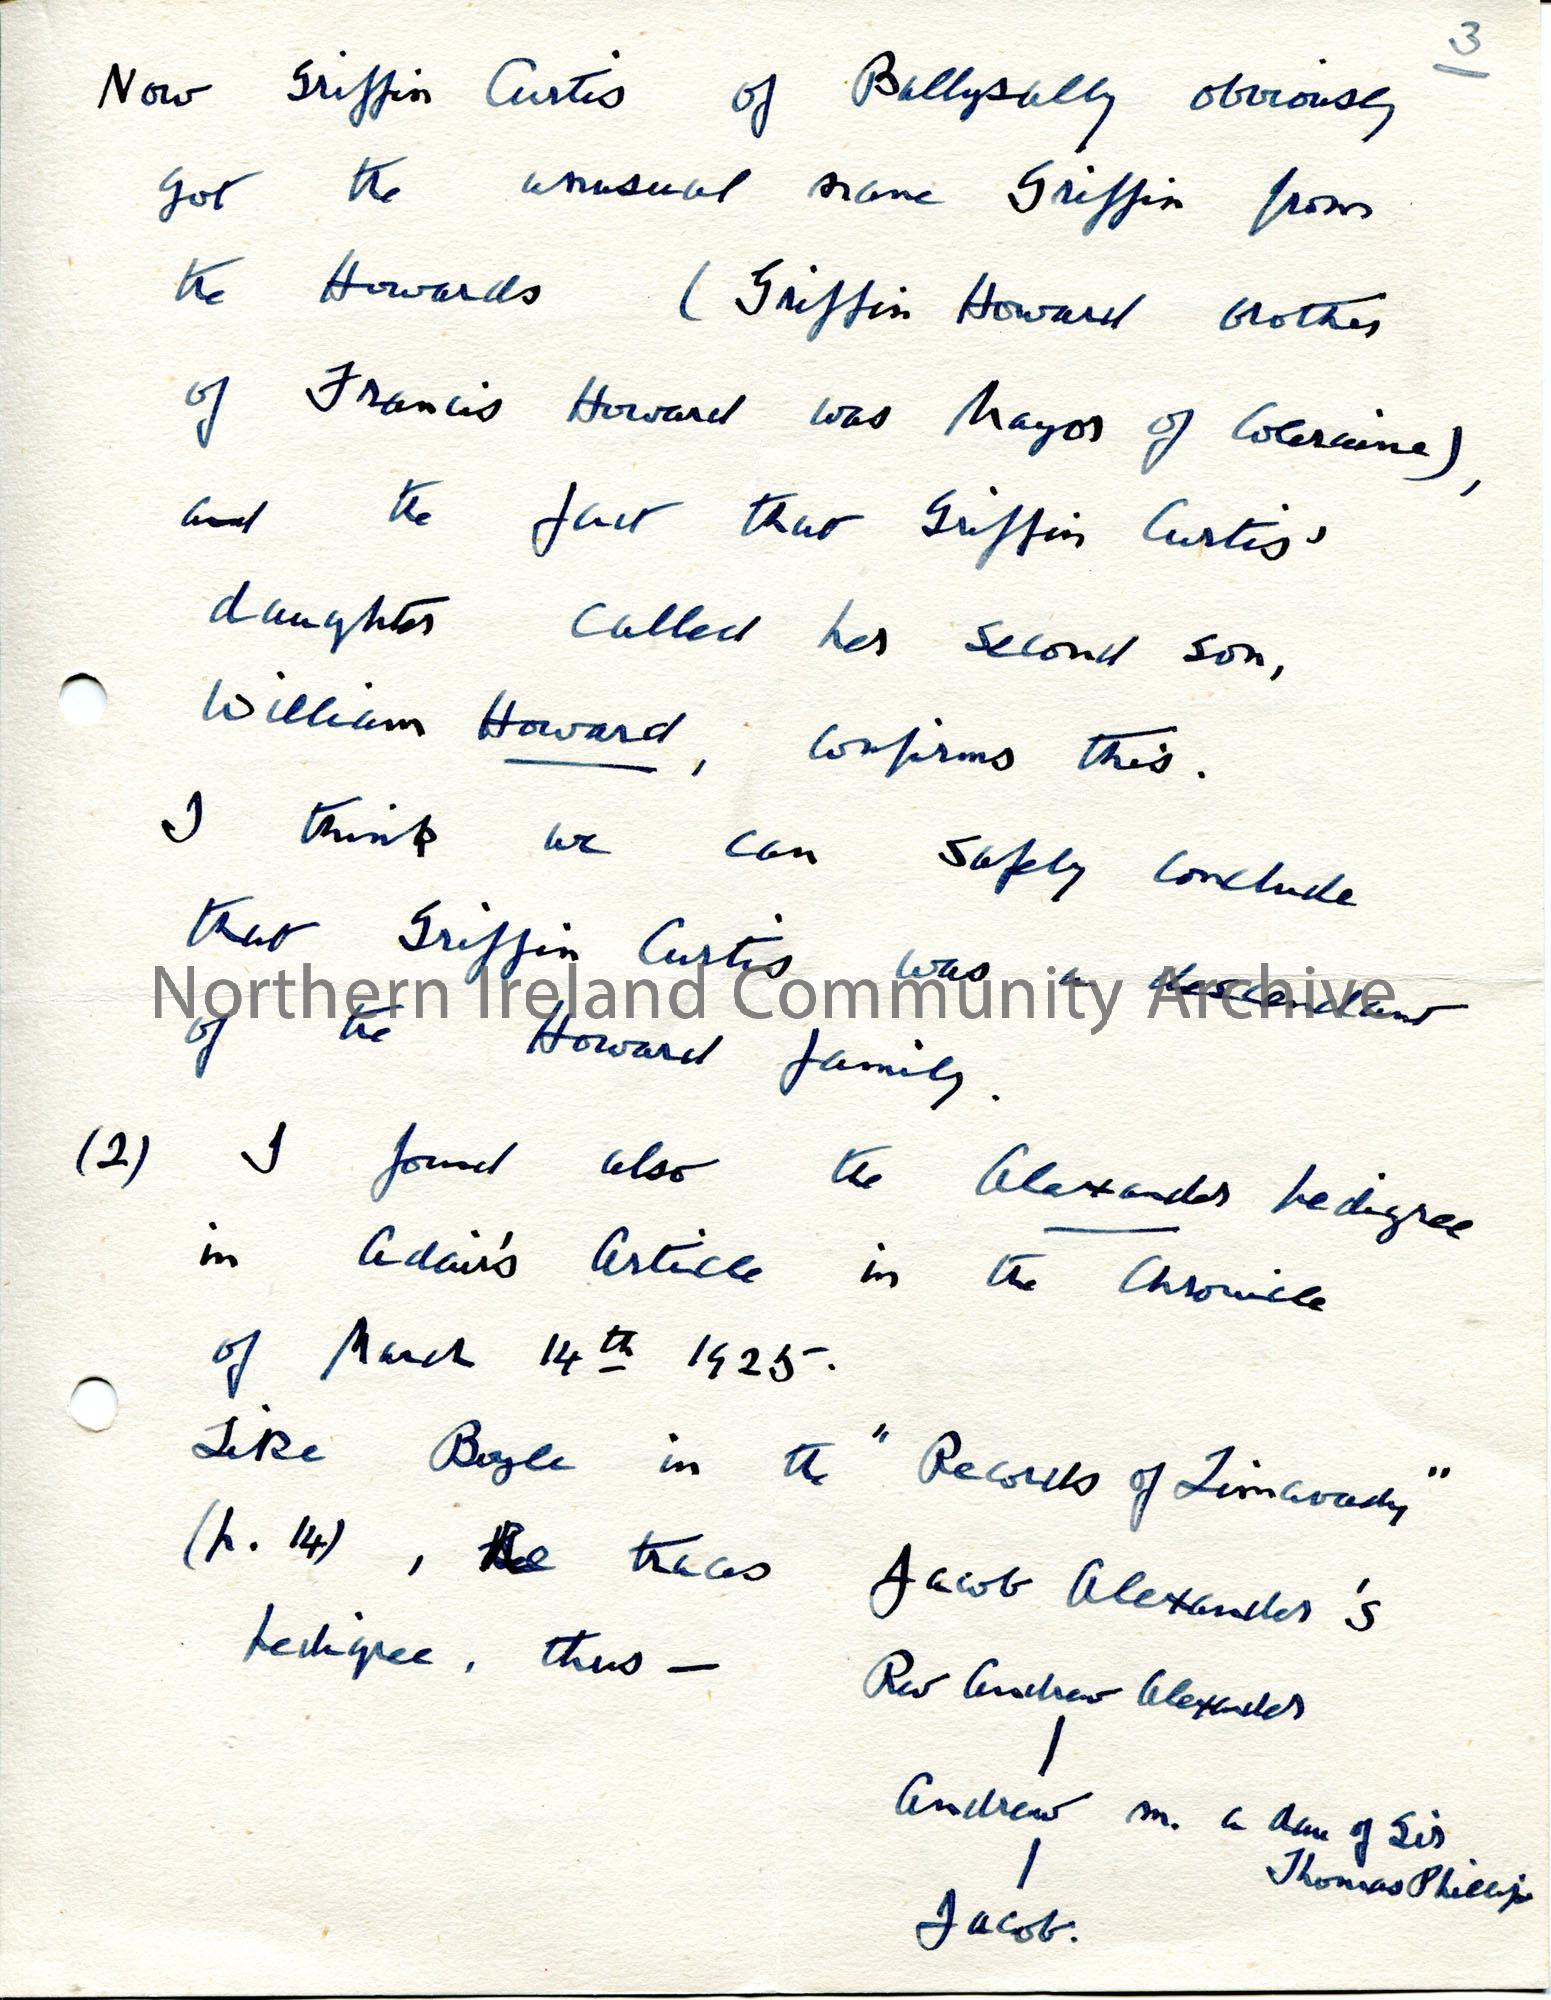 3
Now Griffin Curtis of Ballysally obviously
got the unusual name Griffin from
the Howards (Griffin Howard brother
of Francis Howard was Mayor of Coleraine),
and the fact that Griffin Curtis's
daughter called her second son,
William Howard, confirms this.
I think we can safely conclude
that Griffin Curtis was a descendant
Northern Ireland Community Archive
of the Howard family.
(2) I found also the Alexander pedigree
in Adair's Article in the Chronicle
of March 14th 1925.
Like Boyle in the "Records of Limavady"
(p. 14), he traces Jacob Alexander's
pedigree, thus —
Rev Andrew Alexander
Andrew m. a dau of Sir
Thomas Phillips
Jacob.